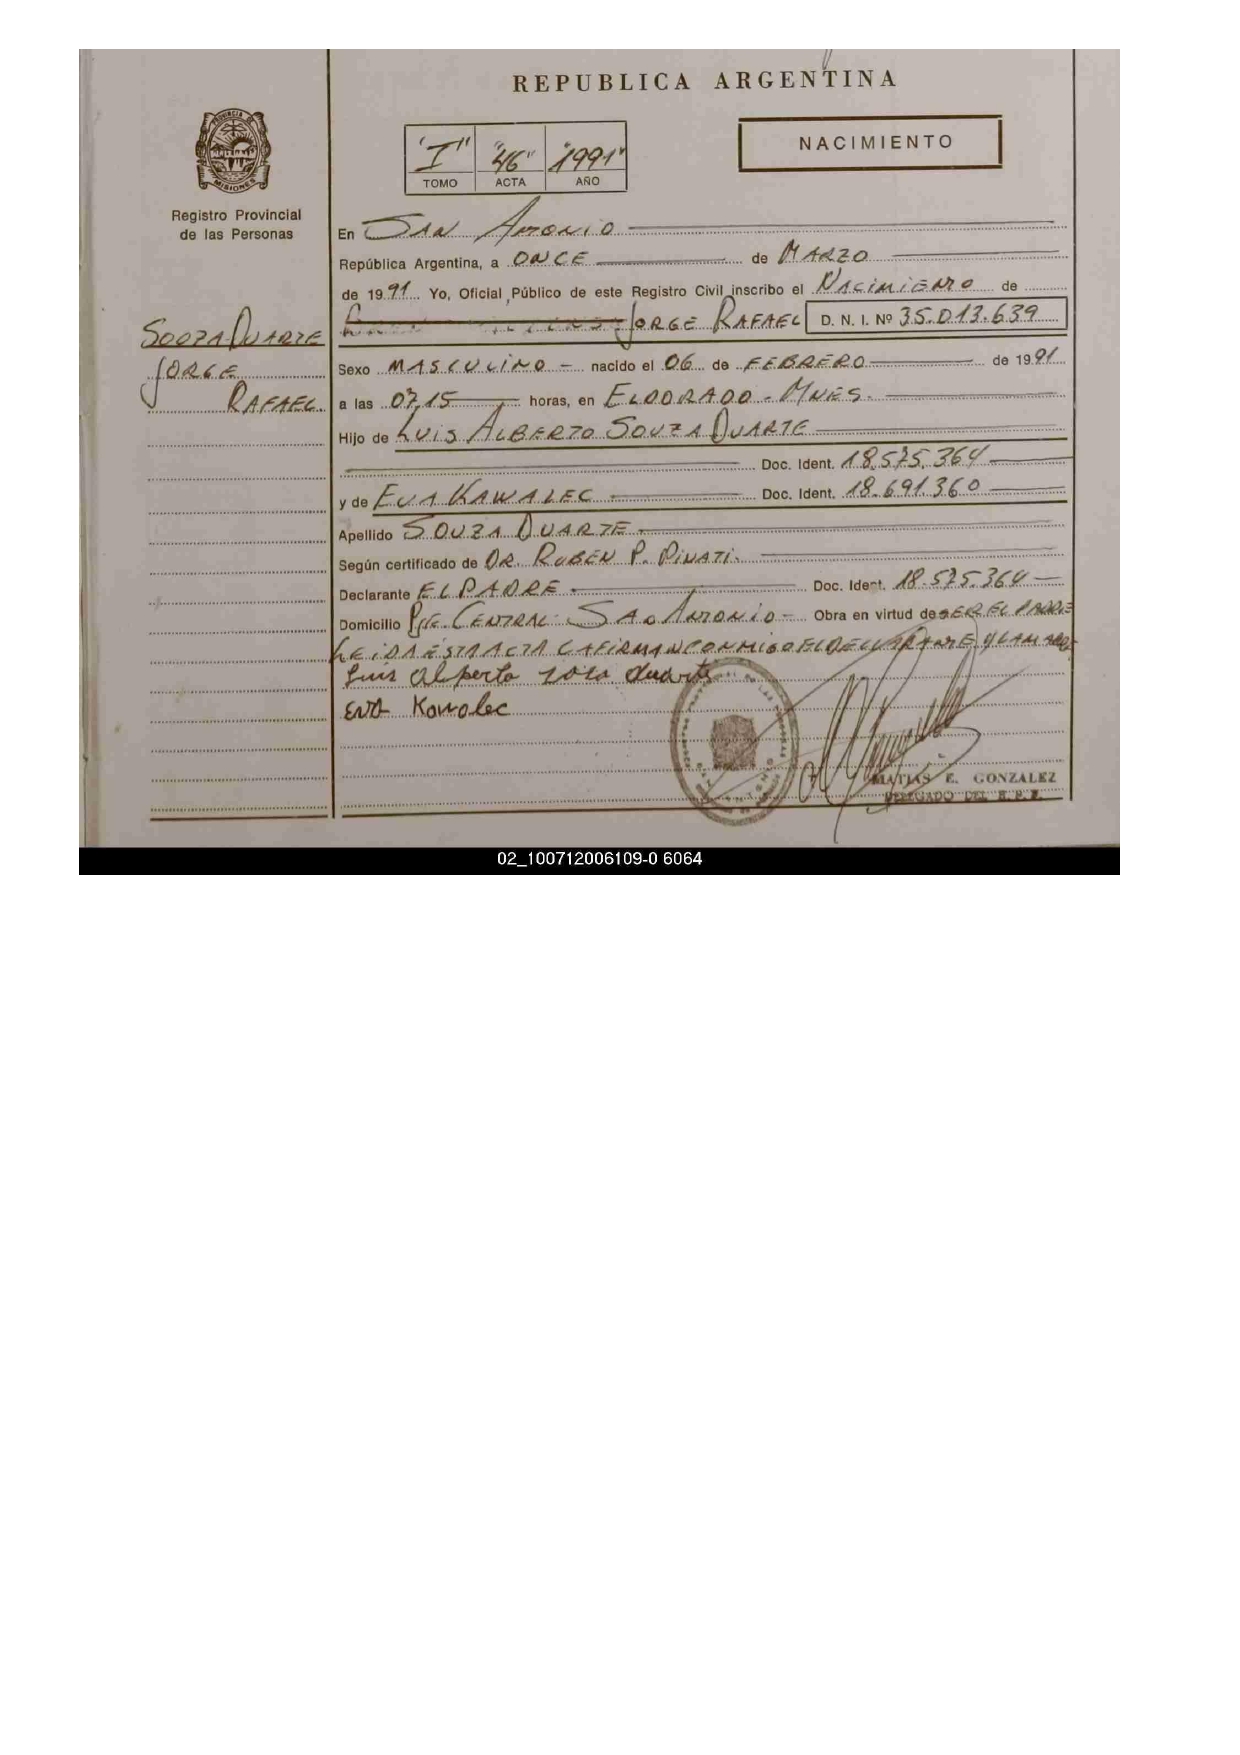 REPUBLICA ARGENTINA
"I" "46" "1991"
TOMO ACTA AÑO
NACIMIENTO
PROVINCIA DE MISIONES
Registro Provincial
de las Personas
SOUZA DUARTE
JORGE
RAFAEL
En SAN ANTONIO
República Argentina, a ONCE de MARZO
de 1991 Yo, Oficial Público de este Registro Civil inscribo el NACIMIENTO de
JORGE RAFAEL D. N. I. Nº 35.013.639
Sexo MASCULINO - nacido el 06 de FEBRERO de 1991
a las 07,15 horas, en ELDORADO - MNES.
Hijo de LUIS ALBERTO SOUZA DUARTE
Doc. Ident. 18.575.364
y de EVA KAWALEC Doc. Ident. 18.691.360
Apellido SOUZA DUARTE
Según certificado de DR. RUBEN P. PINATI.
Declarante EL PADRE Doc. Ident. 18.575.364
Domicilio PJE. CENTRAL - SAN ANTONIO - Obra en virtud de SER EL PADRE
LEIDA ESTA ACTA LA FIRMAN CONMIGO EL DECLARANTE Y LA MADRE
Luis Alberto Duarte
Eva Kawalec
MATIAS E. GONZALEZ
DELEGADO DEL R.P.P.
02_100712006109-0 6064